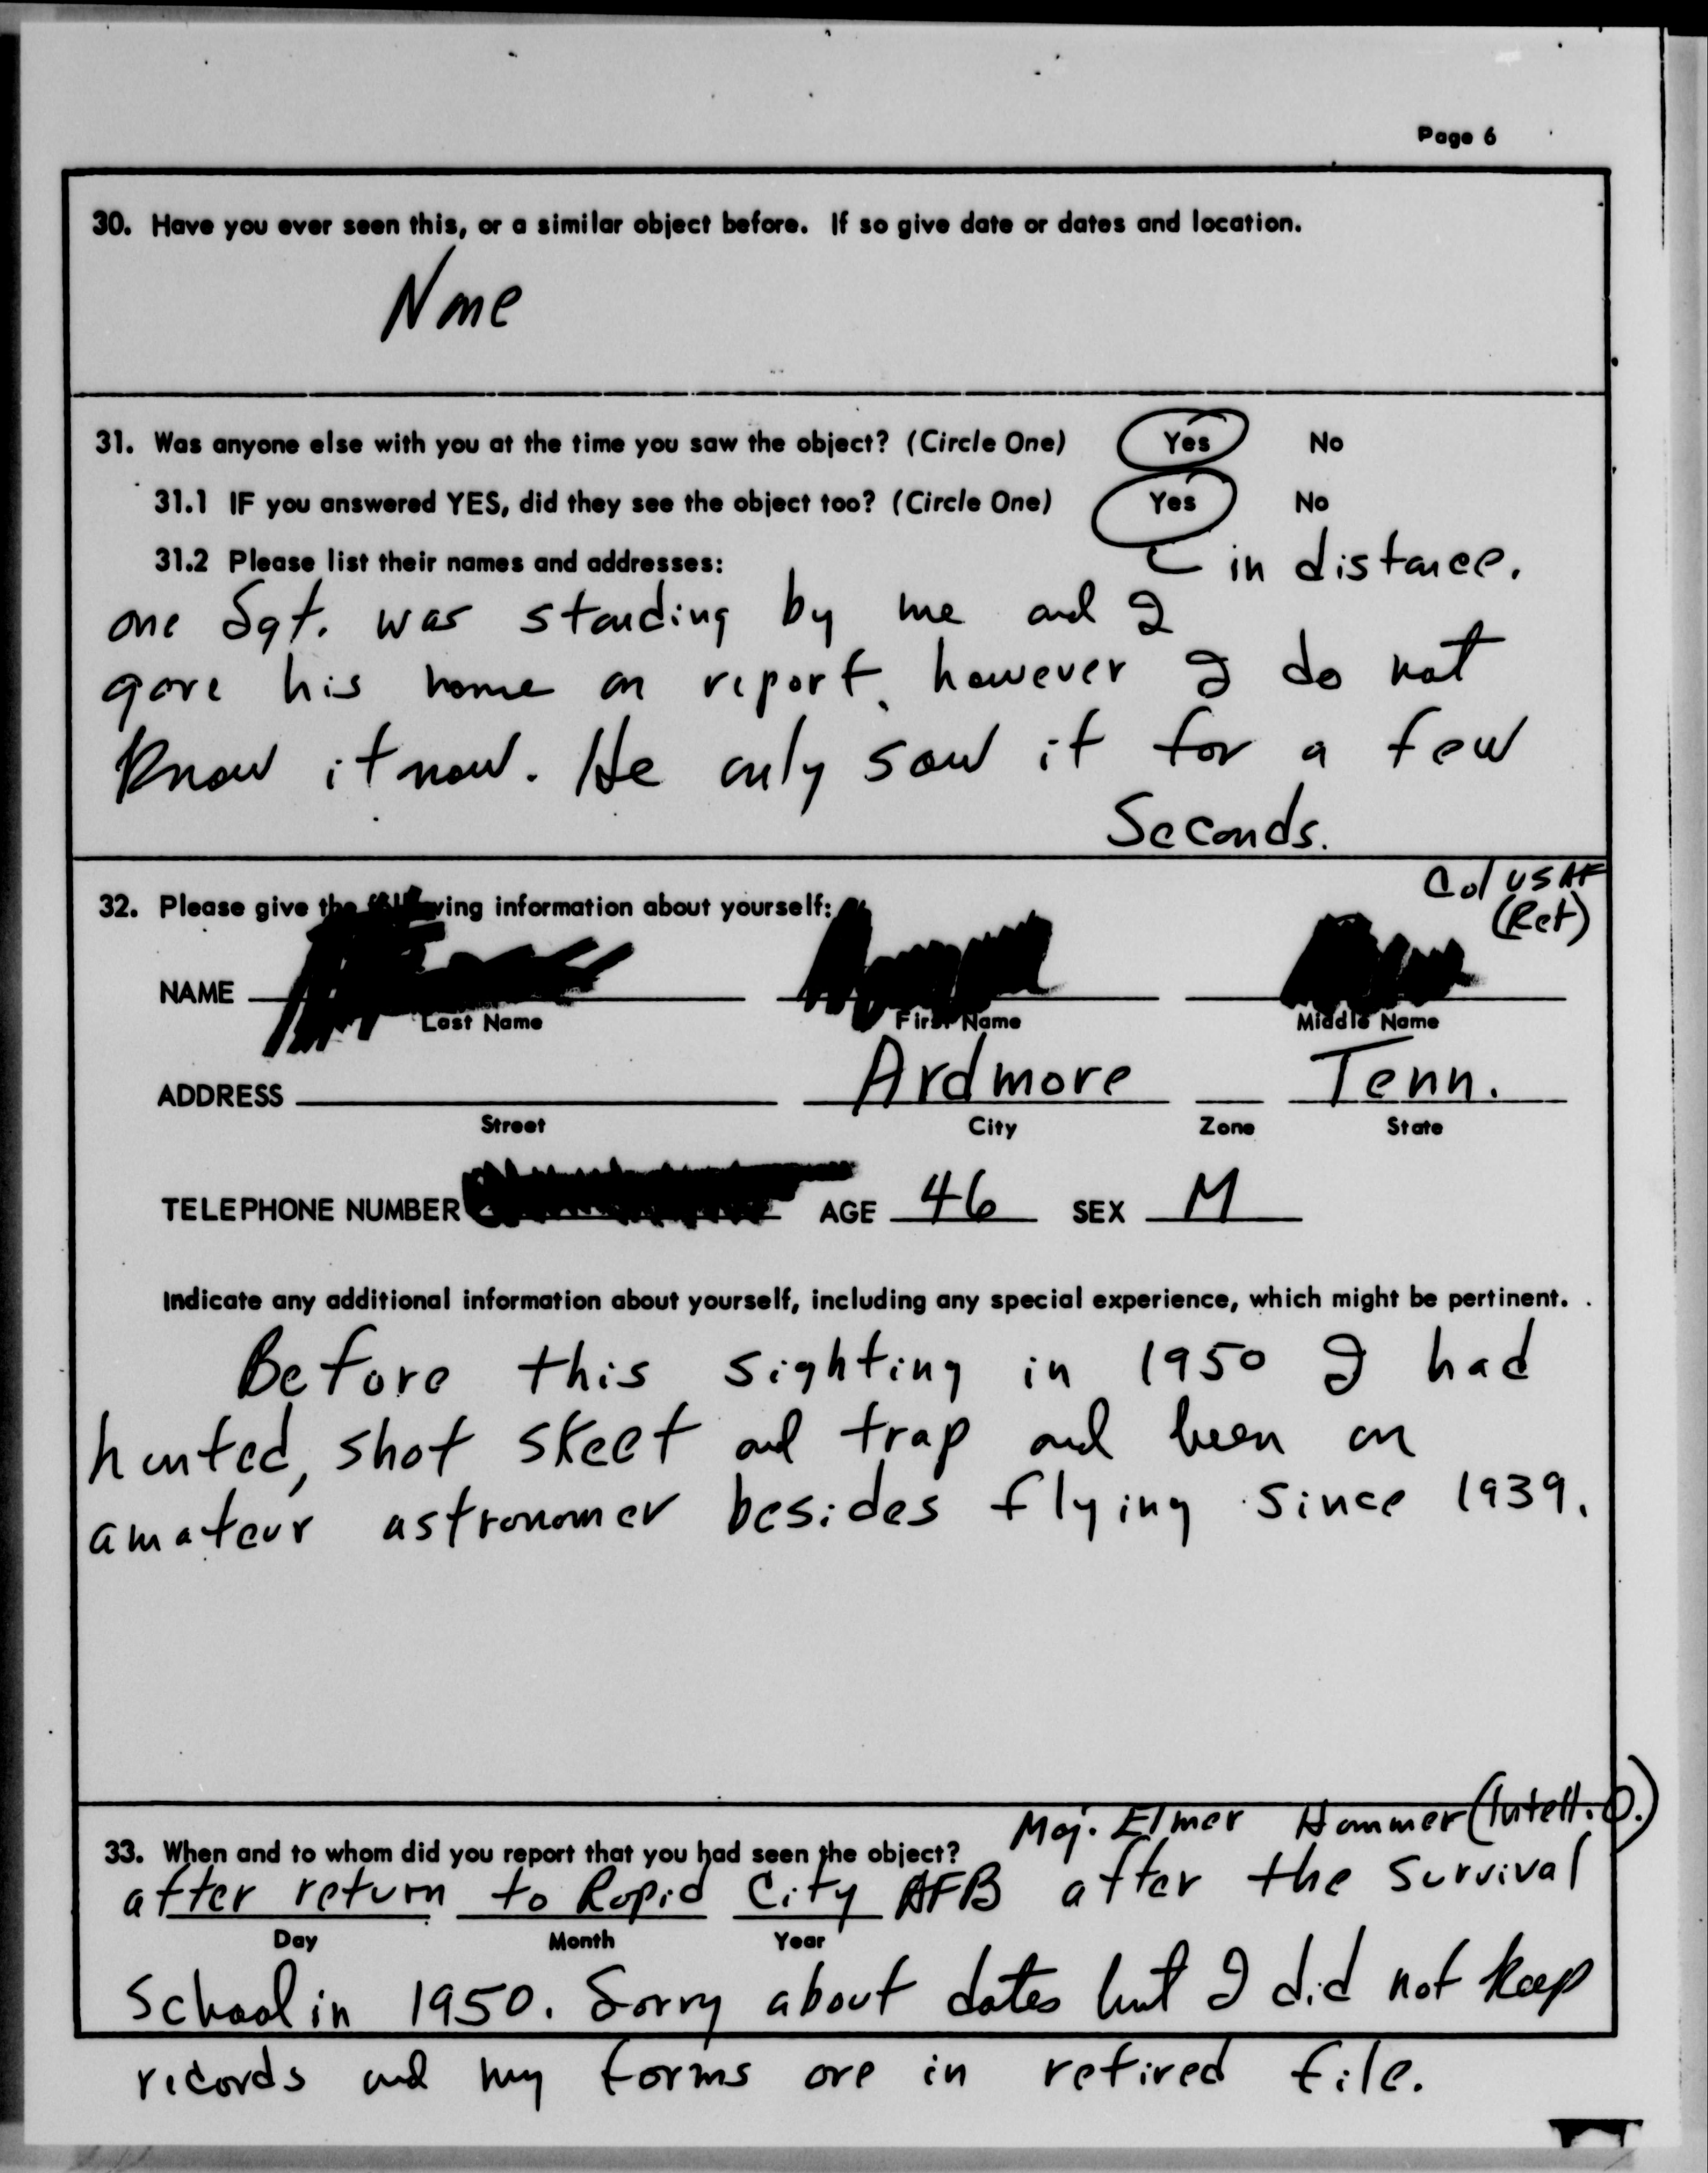 Page 6
30. Have you ever seen this, or a similar object before. If so give date or dates and location.
None
31. Was anyone else with you at the time you saw the object? (Circle One) Yes No
31.1 IF you answered YES, did they see the object too? (Circle One) Yes No
31.2 Please list their names and addresses: in distance.
one Sgt. was standing by me and I
gave his name on report, however I do not
know it now. He only saw it for a few
Seconds.
Col USAF
32. Please give the information about yourself: (Ret)
NAME
Last Name First Name Middle Name
ADDRESS Ardmore Tenn.
Street City Zone State
TELEPHONE NUMBER AGE 46 SEX M
Indicate any additional information about yourself, including any special experience, which might be pertinent.
Before this sighting in 1950 I had
hunted, shot skeet and trap and been an
amateur astronomer besides flying since 1939.
Maj. Elmer Hammer (Intell. O.)
33. When and to whom did you report that you had seen the object?
after return to Rapid City AFB after the survival
Day Month Year
School in 1950. Sorry about dates but I did not keep
records and my forms are in retired file.